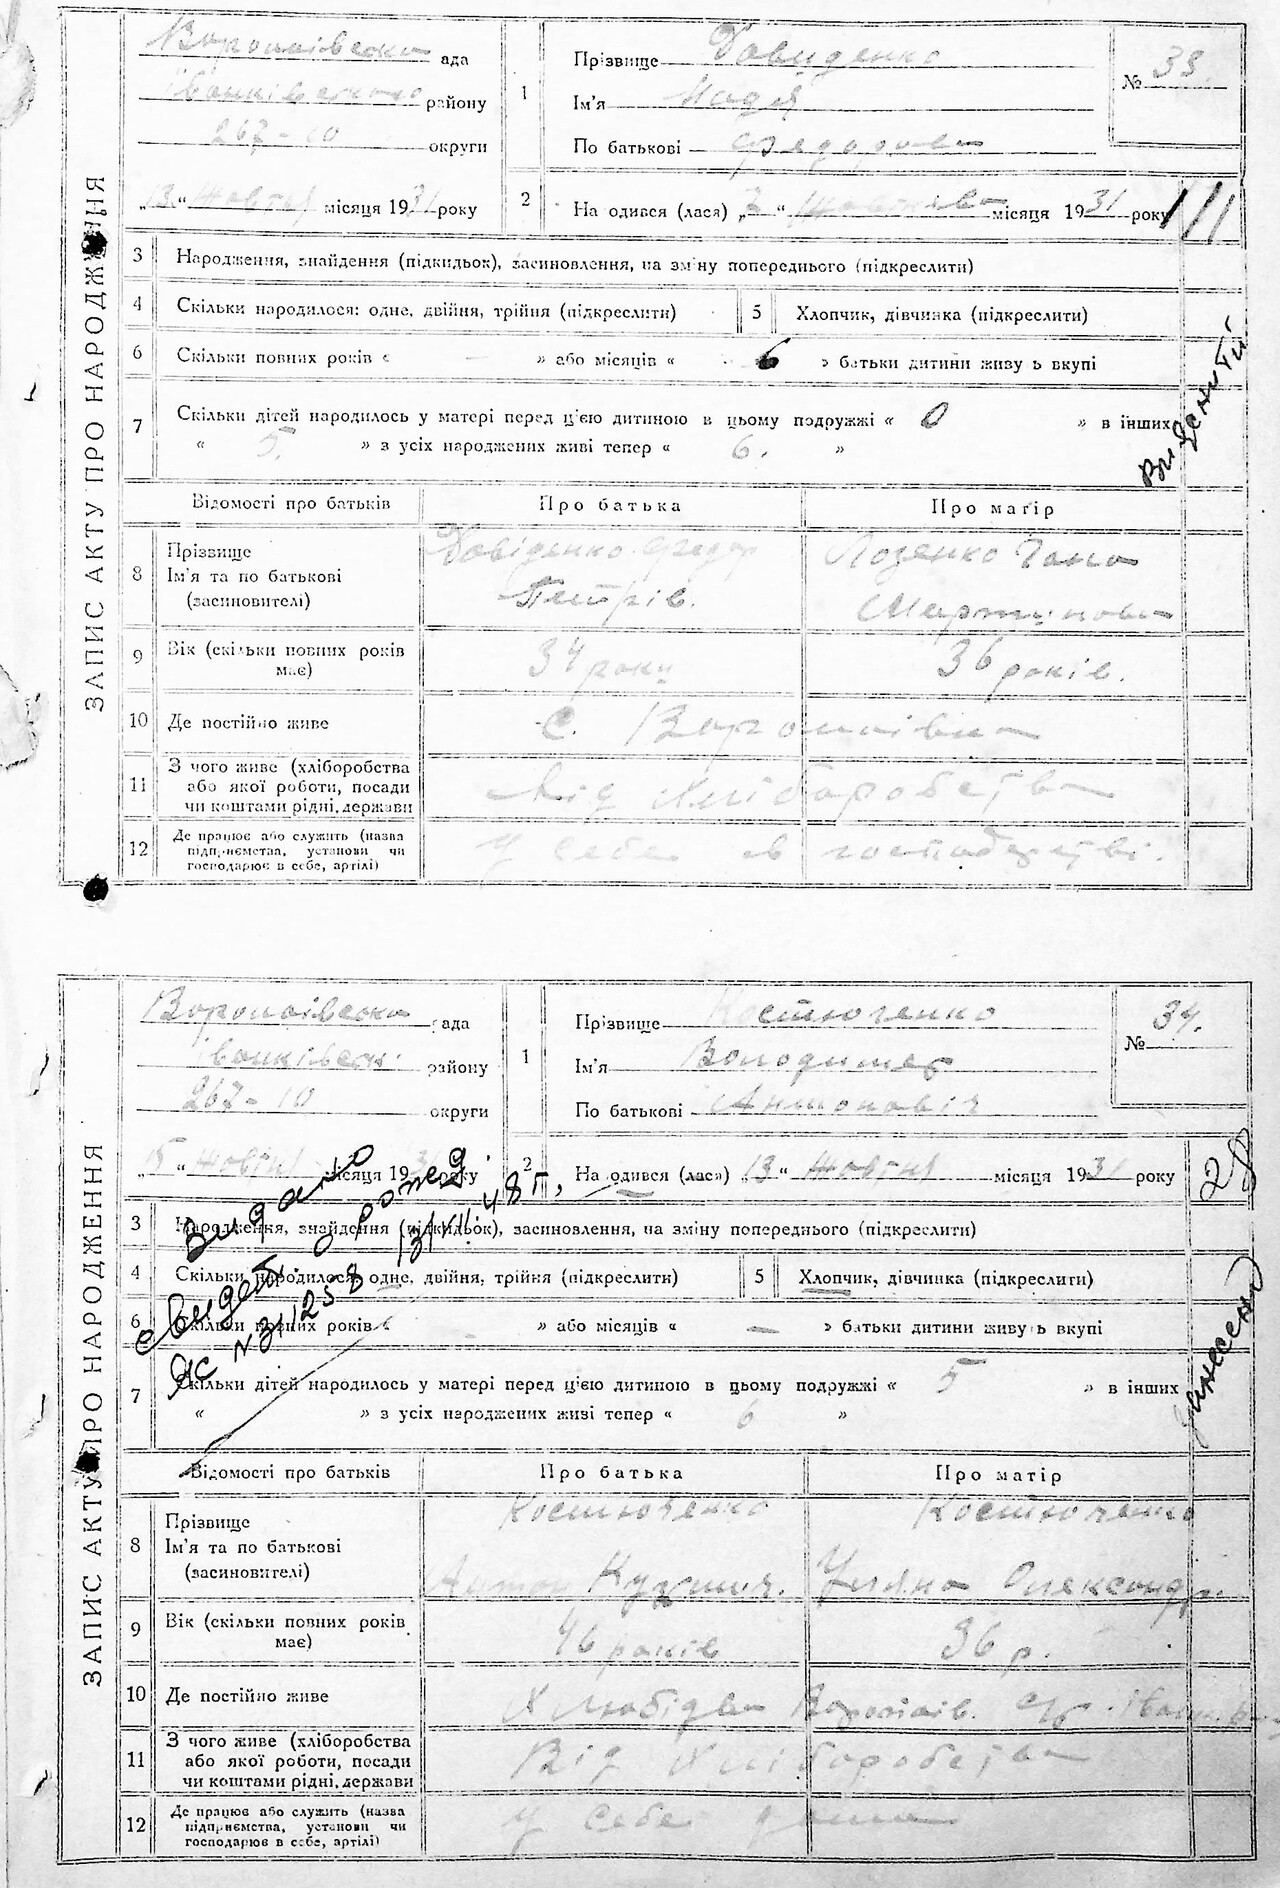 ЗАПИС АКТУ ПРО НАРОДЖЕННЯ
Воропаївська рада
Іванківського району
267-10 округи
„13“ жовтня місяця 1931 року
1
Прізвище Давиденко
Ім'я Надія
По батькові Федорівна
№ 33.
2
Народився (лася) „3“ місяця 1931 року
3 Народження, знайдення (підкидьок), засиновлення, на зміну попереднього (підкреслити)
4 Скільки народилося: одне, двійня, трійня (підкреслити)
5 Хлопчик, дівчинка (підкреслити)
6 Скільки повних років « — » або місяців « 6 » батьки дитини живуть вкупі
7 Скільки дітей народилось у матері перед ц'єю дитиною в цьому подружжі « 0 » в інших
« 5. » з усіх народжених живі тепер « 6. »
Відомості про батьків Про батька Про матір
8 Прізвище
Ім'я та по батькові
(засиновителі)
Давіденко Федор
Петрів.
Лозенко Гана
Мартинова
9 Вік (скільки повних років
має)
34 року
36 років.
10 Де постійно живе
С. Воропаївка
11 З чого живе (хліборобства
або якої роботи, посади
чи коштами рідні, держави
Від хліборобства
12 Де працює або служить (назва
підприємства, установи чи
господарює в себе, артілі)
У себе в господарстві.
ЗАПИС АКТУ ПРО НАРОДЖЕННЯ
Воропаївська рада
Іванківськ. району
267-10 округи
„15“ жовтня місяця 1931 року
1
Прізвище Костюченко
Ім'я Володимер
По батькові Антоновіч
№ 34.
2
Народився (лася) „13“ жовтня місяця 1931 року
28
3 Народження, знайдення (підкидьок), засиновлення, на зміну попереднього (підкреслити)
4 Скільки народилося: одне, двійня, трійня (підкреслити)
5 Хлопчик, дівчинка (підкреслити)
6 Скільки повних років « — » або місяців « — » батьки дитини живуть вкупі
7 Скільки дітей народилось у матері перед ц'єю дитиною в цьому подружжі « 5 » в інших
« » з усіх народжених живі тепер « 6 »
Видано
свидет. о рожд.
ЯС N 311258
48 г.
Відомості про батьків Про батька Про матір
8 Прізвище
Ім'я та по батькові
(засиновителі)
Костюченко
Антон Кузмич.
Костюченко
Уляна Олександр.
9 Вік (скільки повних років
має)
46 років
36 р.
10 Де постійно живе
11 З чого живе (хліборобства
або якої роботи, посади
чи коштами рідні, держави
Від хліборобства
12 Де працює або служить (назва
підприємства, установи чи
господарює в себе, артілі)
У себе дома